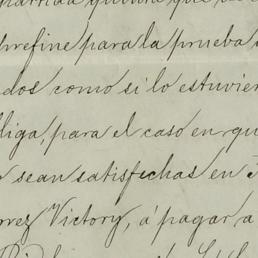 quiera que se
prefine para la prueba
dos como si lo estuvier
liga, para el caso en qu
sean satisfechas en
rrez Victory, á pagar a